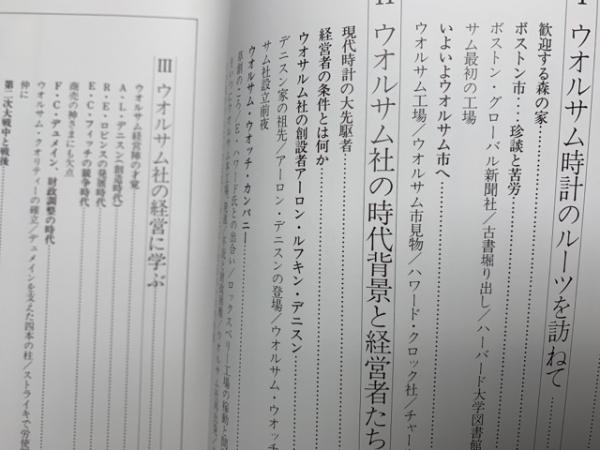 I ウオルサム時計のルーツを訪ねて
歓迎する森の家
ボストン市……珍談と苦労
ボストン・グローバル新聞社／古書堀り出し／ハーバード大学図書館
サム最初の工場
いよいよウオルサム市へ
ウオルサム工場／ウオルサム市見物／ハワード・クロック社／チャー
II ウオルサム社の時代背景と経営者たち
現代時計の大先駆者
経営者の条件とは何か
ウオサルム社の創設者アーロン・ルフキン・デニスン
デニスン家の祖先／アーロン・デニスンの登場／ウオルサム・ウオッチ
サム社設立前夜
ウオルサム・ウオッチ・カンパニー
草創のころ／E・ハワード氏との出合い／ロックスベリー工場の稼動と
III ウオルサム社の経営に学ぶ
ウオルサム経営陣の才覚
A・L・デニスン（創造時代）
R・E・ロビンスの発展時代
E・C・フィッチの競争時代
商売の神さまにも欠点
F・C・デュメイン、財政調整の時代
ウオルサム・クオリティーの確立／デュメインを支えた四本の柱／ストライキで労使
仲に
第二次大戦中と戦後